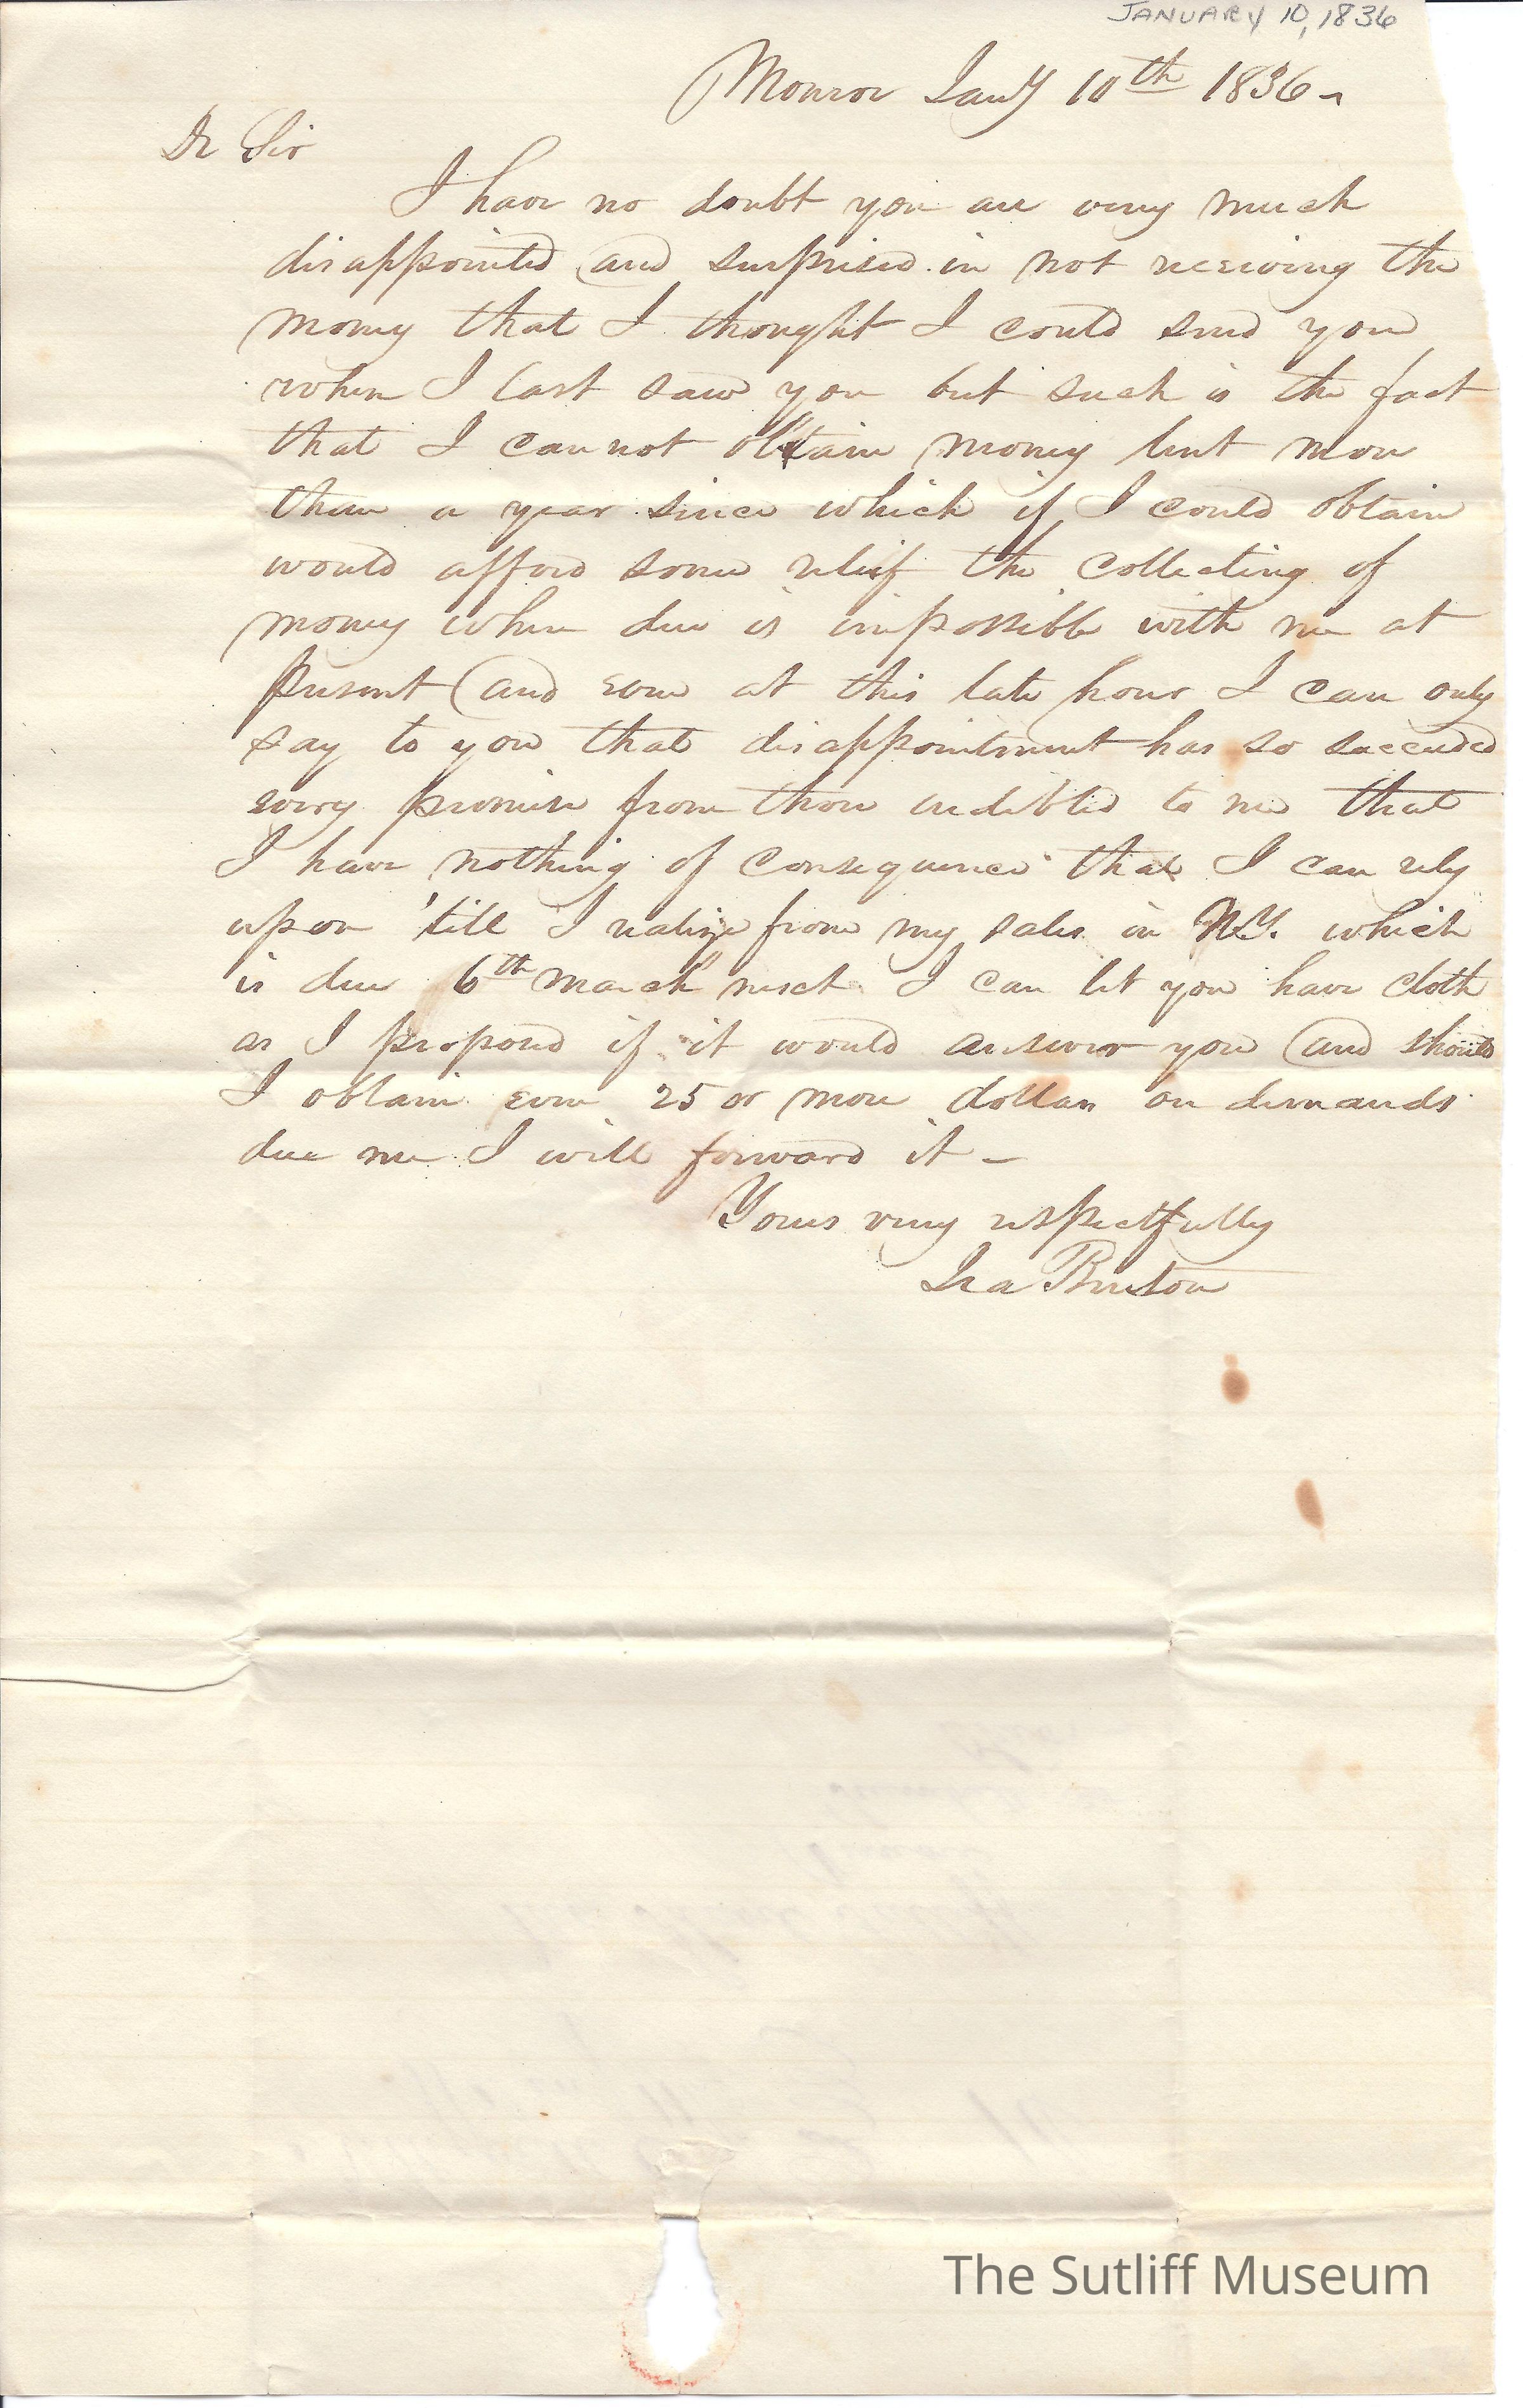 JANUARY 10, 1836
Monroe Jany 10th 1836
Dr Sir
I have no doubt you are very much
disappointed and surprised in not receiving the
money that I thought I could send you
when I last saw you but such is the fact
that I cannot obtain money lent more
than a year since which if I could obtain
would afford some relief the collecting of
money when due is impossible with me at
present and even at this late hour I can only
say to you that disappointment has so succeeded
every promise from those indebted to me that
I have nothing of consequence that I can rely
upon 'till I realize from my sales in N.Y. which
is due 6th March next I can let you have cloth
as I proposed if it would answer you and should
I obtain even 25 or more dollars on demands
due me I will forward it –
Yours very respectfully
Ira
The Sutliff Museum